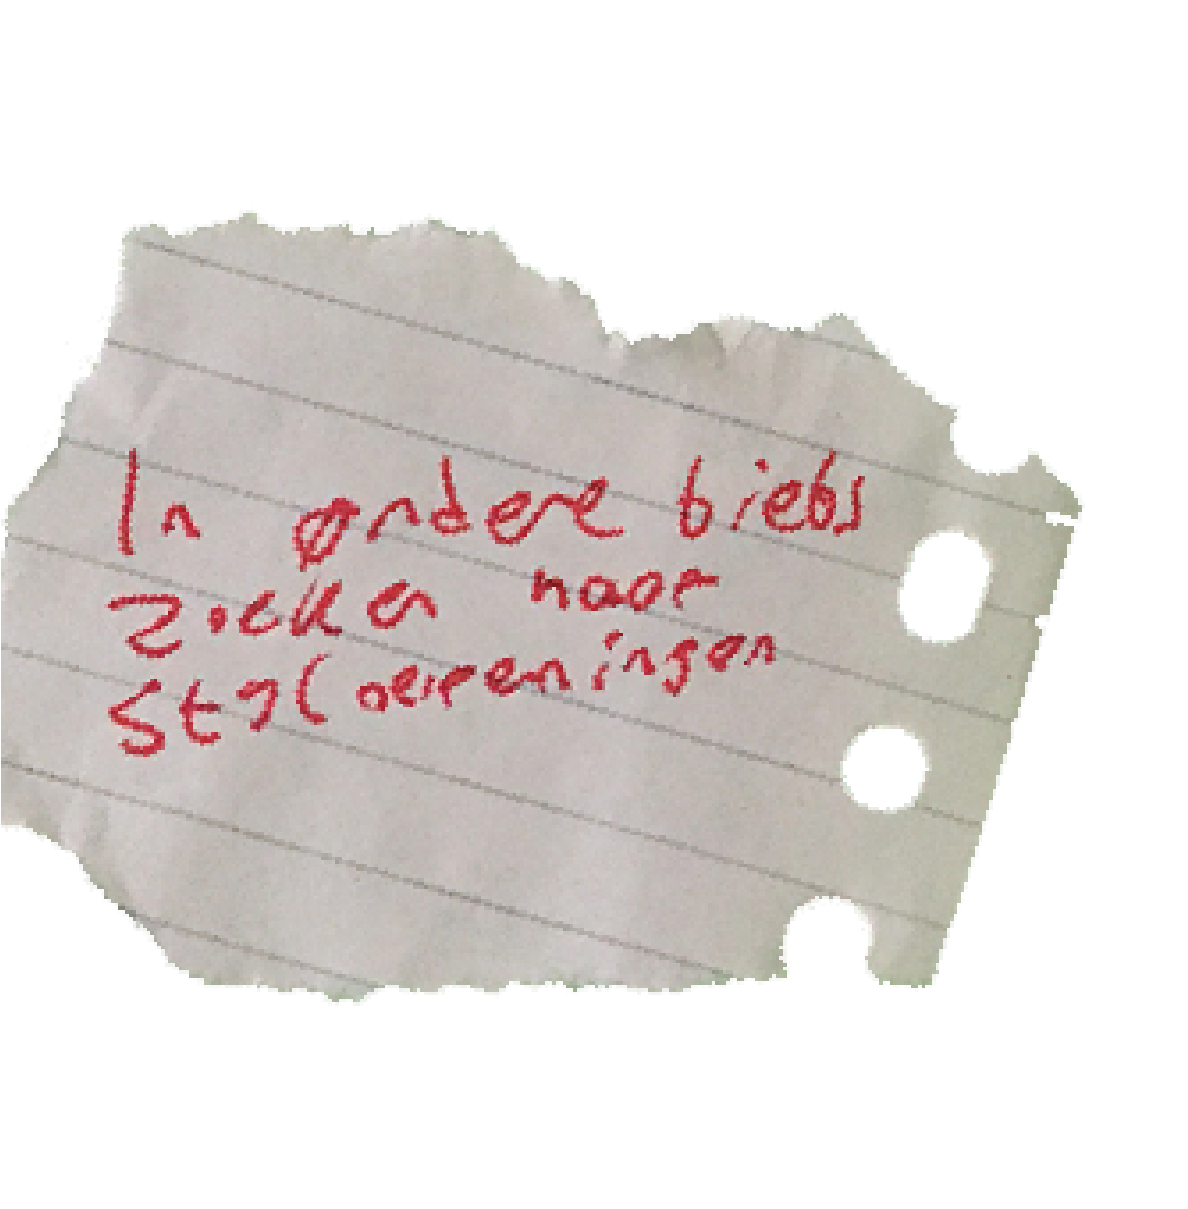 In andere biebs
zoeken naar
stgloeipeningen